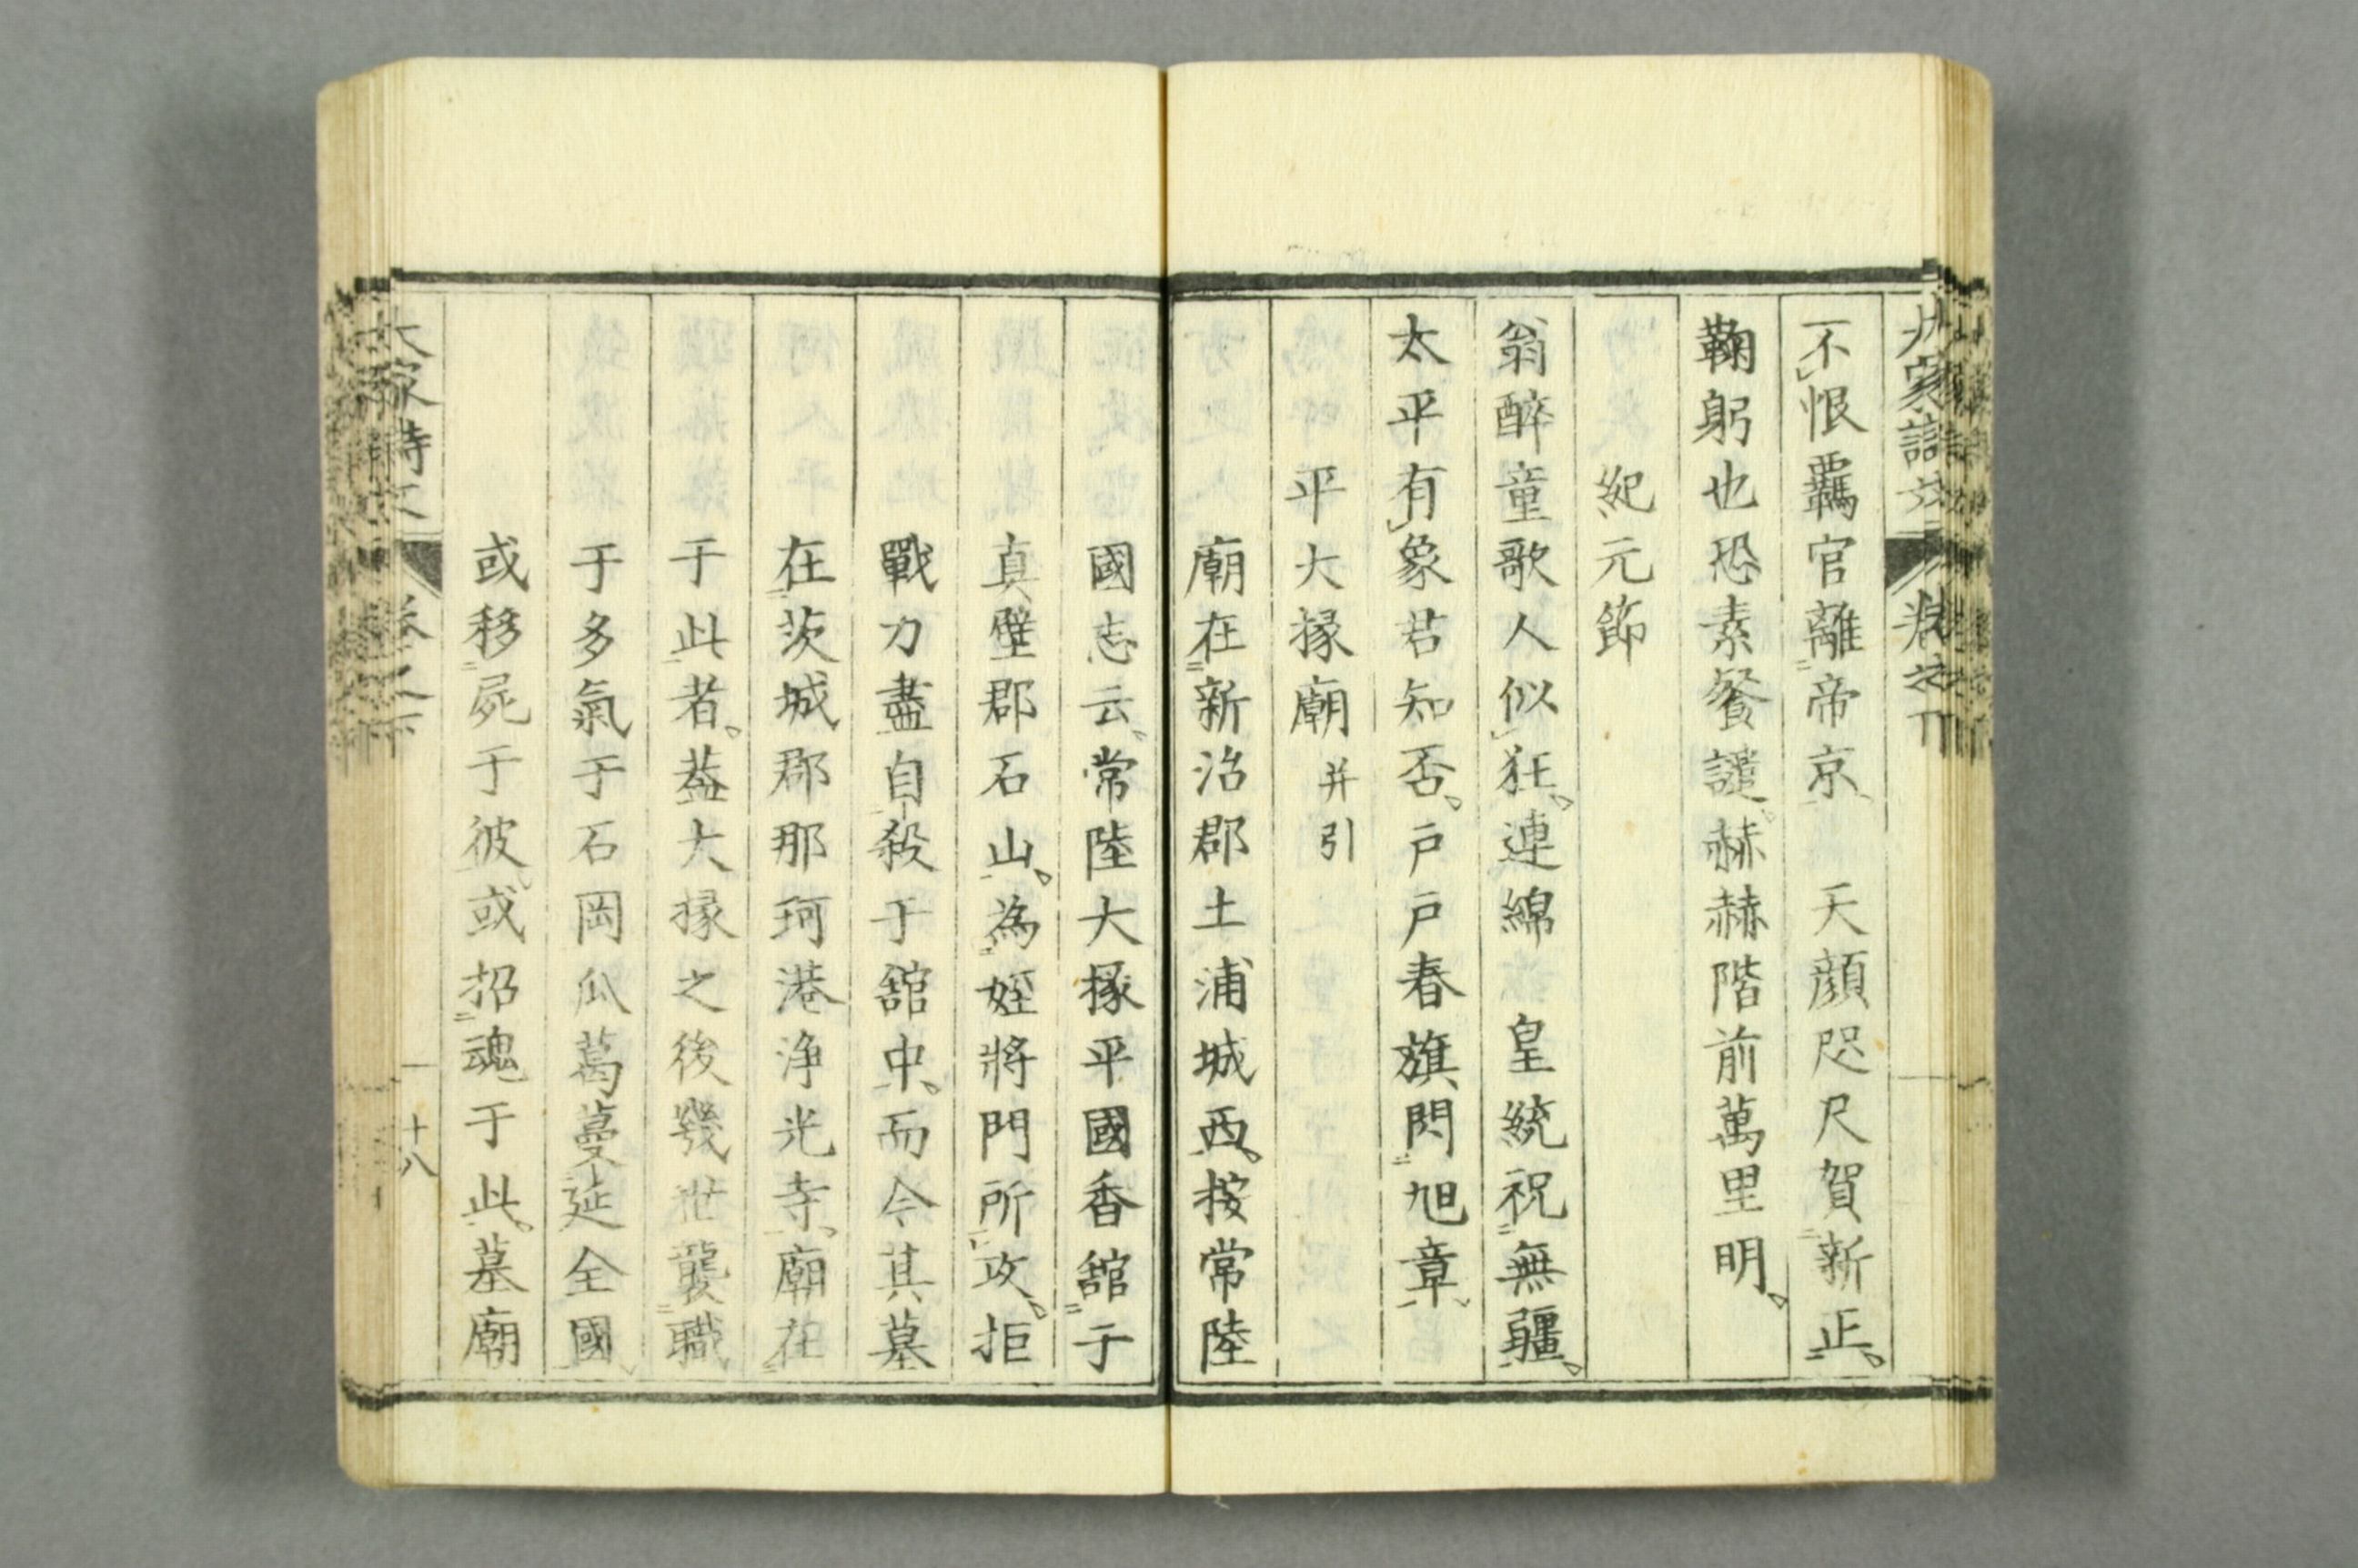 不恨羈官離帝京、　天顔咫尺賀新正。
鞠躬也恐素餐譴。赫赫階前萬里明。
紀元節
翁醉童歌人似狂。連綿　皇統祝無疆。
太平有象君知否。戸戸春旗閃旭章、
平大掾廟 并引
廟在新治郡土浦城西。按常陸
國志云。常陸大掾平國香舘于
真壁郡石山。為姪將門所攻。拒
戰力盡自殺于舘中。而今其墓
在茨城郡那珂港浄光寺、廟在
于此者。葢大掾之後幾世襲職
于多氣于石岡瓜葛蔓延全國、
或移屍于彼、或招魂于此。墓廟
大家詩文 卷之下 十八